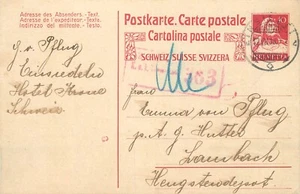 Adresse des Absenders. - Text.
Adresse de l'expéditeur. - Texte.
Indirizzo del mittente. - Testo.
Postkarte. Carte postale
Cartolina postale
SCHWEIZ SUISSE SVIZZERA
10
HELVETIA
G. v. Pflug
Einsiedeln
Hotel Krone
Schweiz
Frau
Emma von Pflug
p. A. G. Hutter
Lambach